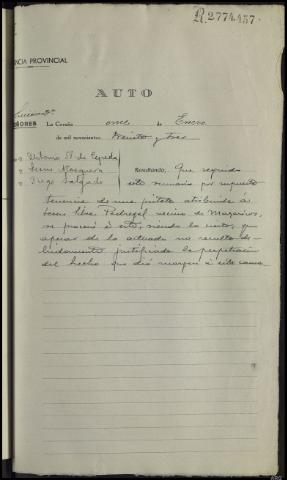 R.2774.457
NCIA PROVINCIAL
AUTO
ÑORES
La Coruña once de Enero
de mil novecientos treinta y tres
Urbano R. de Cepeda
Luis Mosquera
Diego Salgado
Resultando, Que seguido
este sumario por supuesta
tenencia de una pistola atribuida a
vecino de
se procesó a éste, siendo lo cierto, que
apesar de lo actuado no resulta de-
bidamente justificada la perpetración
del hecho que dió margen á esta causa